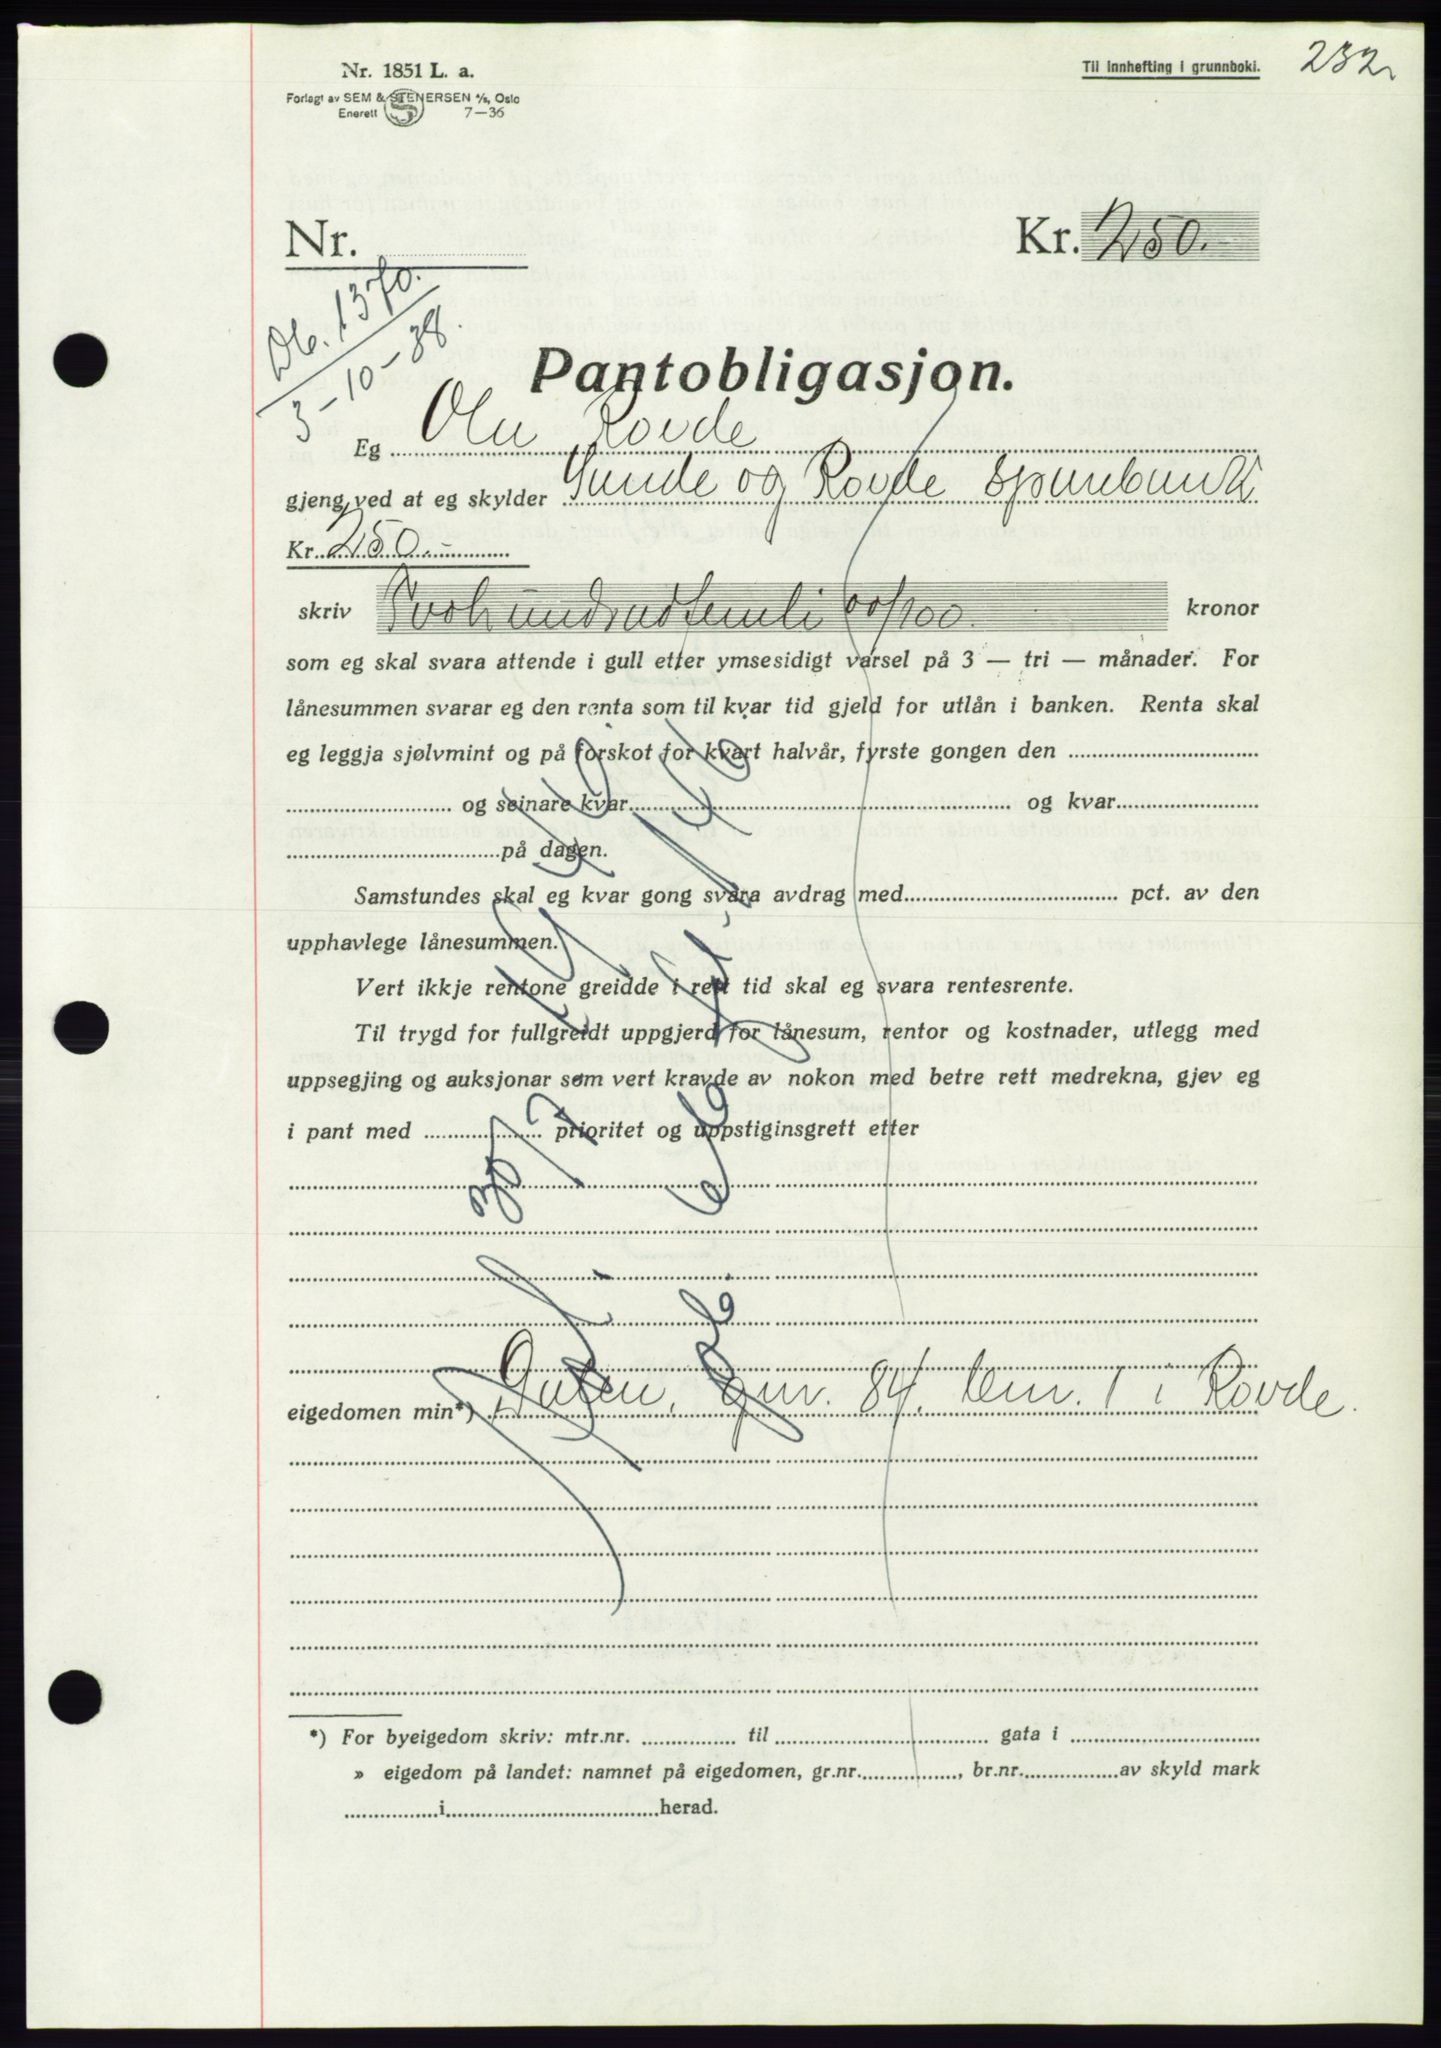 Nr. 1851 L. a.
Forlagt av SEM & STENERSEN A/S, Oslo
Enerett 7—36
Til innhefting i grunnboki.
232
Nr.
Kr. 250.-
Db. 1370.
3-10-38.
Pantobligasjon.
Eg Ola Rovde
gjeng ved at eg skylder Sunde og Rovde Sparebank
Kr. 250.-
skriv Tvohundradfemti 00/100. kronor
som eg skal svara attende i gull etter ymsesidigt varsel på 3 — tri — månader. For
lånesummen svarar eg den renta som til kvar tid gjeld for utlån i banken. Renta skal
eg leggja sjølvmint og på forskot for kvart halvår, fyrste gongen den
og seinare kvar og kvar
på dagen.
Samstundes skal eg kvar gong svara avdrag med pct. av den
upphavlege lånesummen.
Vert ikkje rentone greidde i rett tid skal eg svara rentesrente.
Til trygd for fullgreidt uppgjerd for lånesum, rentor og kostnader, utlegg med
uppsegjing og auksjonar som vert kravde av nokon med betre rett medrekna, gjev eg
i pant med prioritet og uppstiginsgrett etter
eigedomen min*) gnr. 84, bnr. 1 i Rovde.
30/7 1946.
*) For byeigedom skriv: mtr.nr. til gata i
» eigedom på landet: namnet på eigedomen, gr.nr. , br.nr. av skyld mark
i herad.